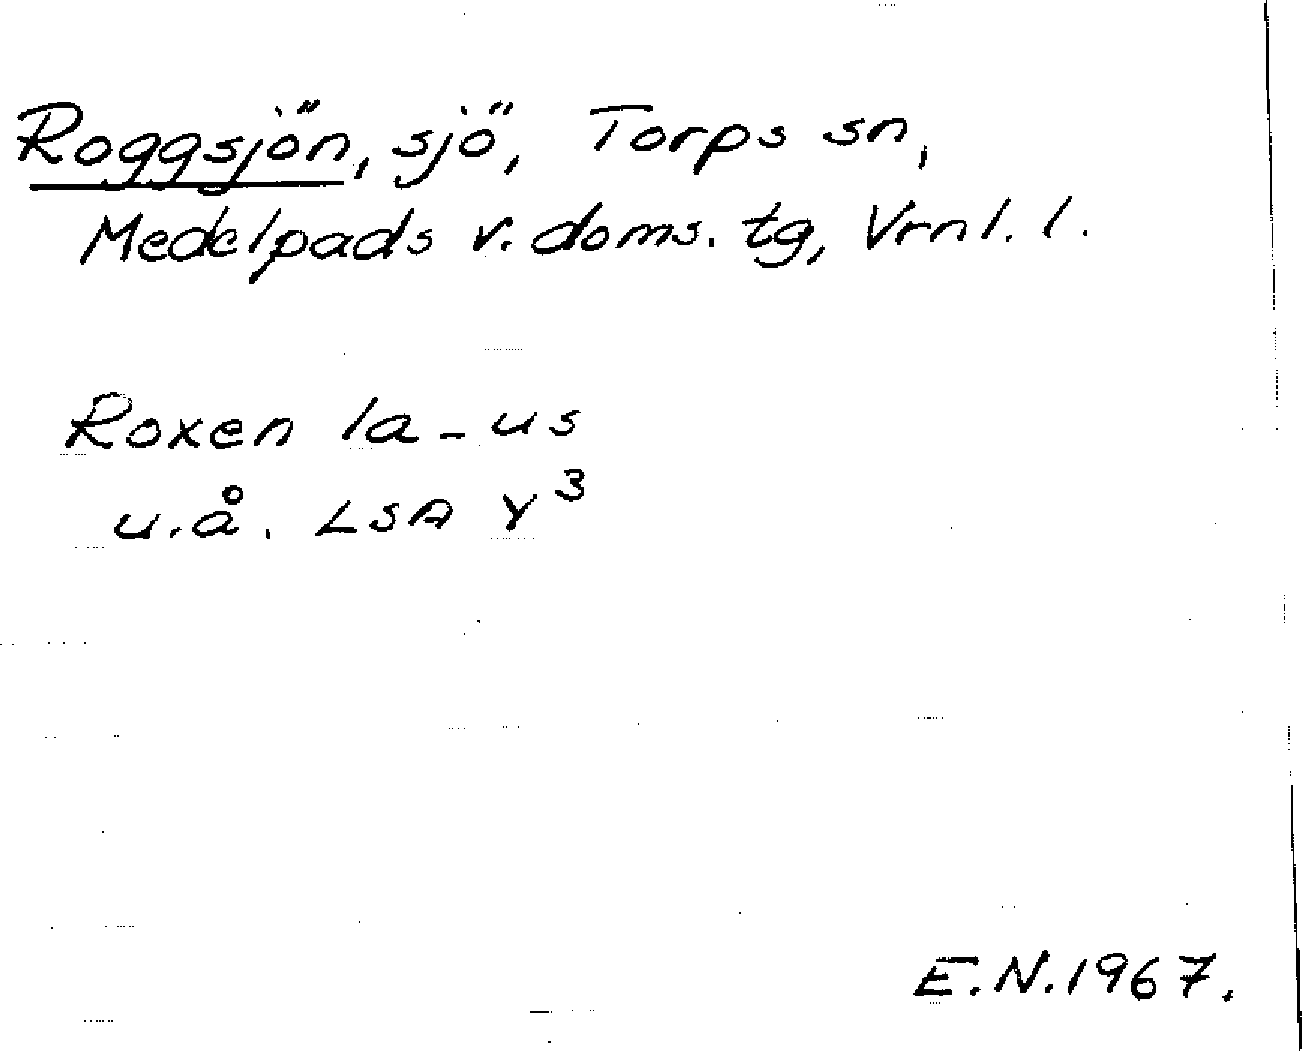 Roggsjön, sjö, Torps sn,
Medelpads v. doms. tg, Vrnl. l.
Roxen la-us
u.å. LSA Y³
E.N.1967.